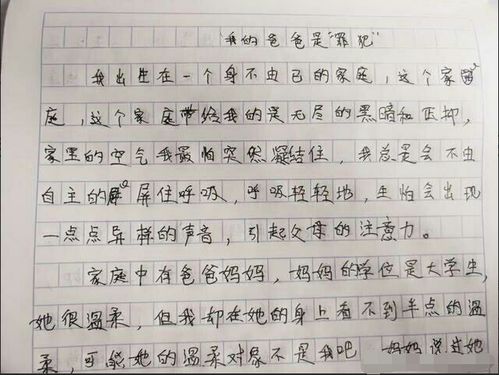 “我的爸爸是“罪犯”
我出生在一个身不由己的家庭，这个家
庭，这个家庭带给我的是无尽的黑暗和压抑，
家里的空气我最怕突然凝结住，我总是会不由
自主的屏住呼吸，呼吸轻轻地，生怕会出现
一点点异样的声音，引起父母的注意力。
家庭中有爸爸妈妈，妈妈的学位是大学生，
她很温柔，但我却在她的身上看不到半点的温
柔，可能她的温柔对象不是我吧 妈妈说过她